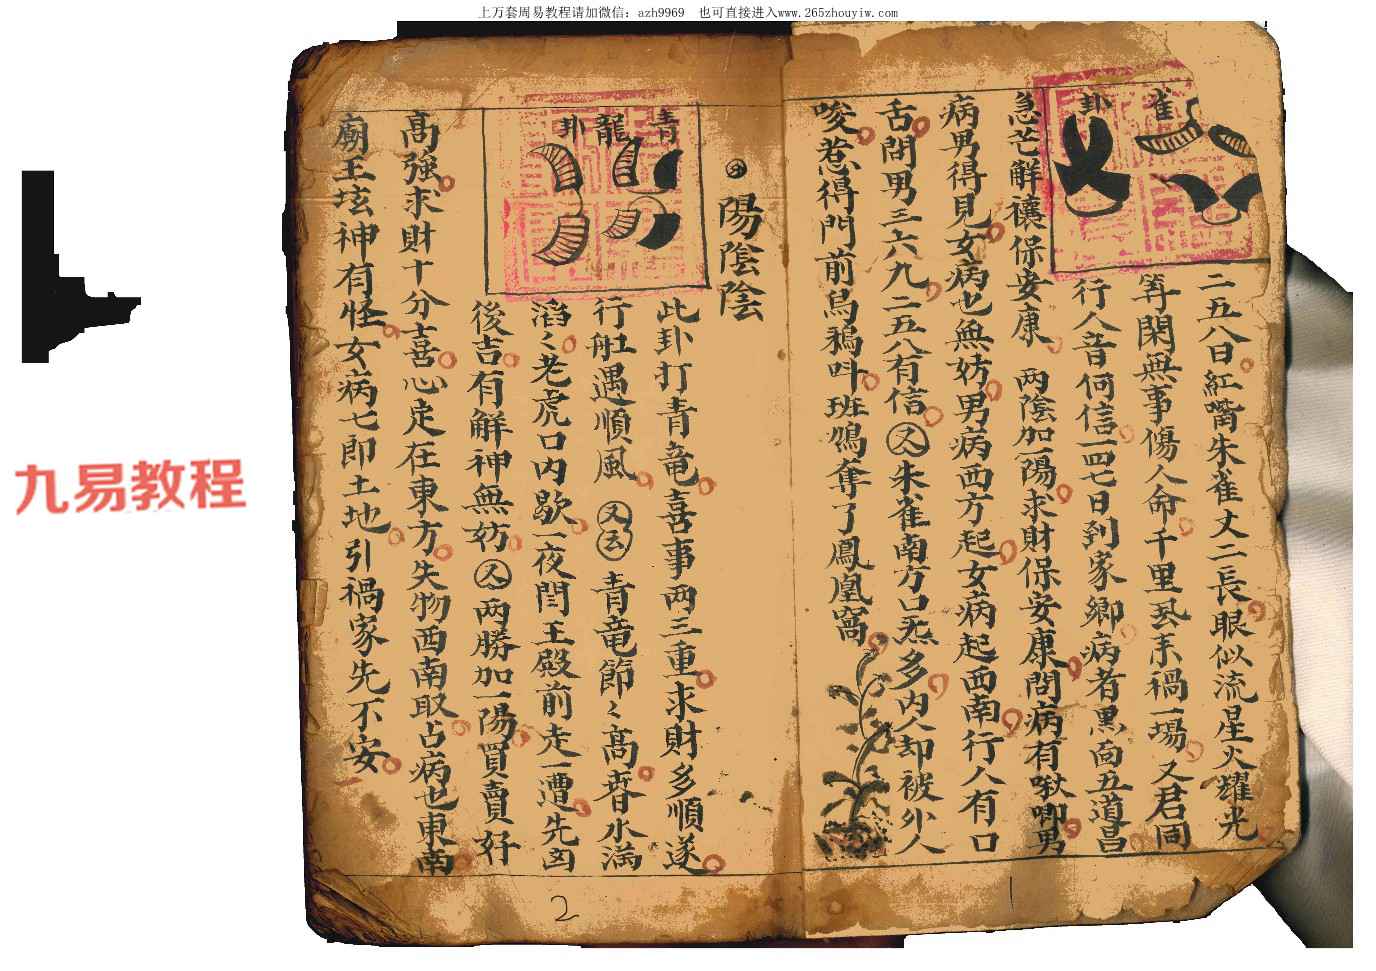 上万套周易教程请加微信：azh9969　也可直接进入www.265zhouyiw.com
雀
卦
二五八日紅嘴朱雀丈二長眼似流星火耀光
等閑無事傷人命千里禍一場又君
行人音何信一四七日到家鄉病者黑面五道昌
急芒解禳保安康 两陰加一陽求財保安康問病有啾唧男
病男得見女病也無妨男病西方起女病起西南行人有口
舌問男三六九二五八有信又朱雀南方口多内人却被外人
唆惹得門前烏鴉叫班鳩奪了鳳凰窩
1
陽陰陰
青
龍
卦
此卦打青竜喜事两三重求財多順遂
行舡遇順風又云青竜節々高春水满
滔々老虎口内歇一夜閆王殿前走一遭先凶
後吉有解神無妨又两勝加一陽買賣好
高強求財十分喜心定在東方失物西南取占病也東南
廟王坛神有怪女病七即土地引禍家先不安
2
九易教程